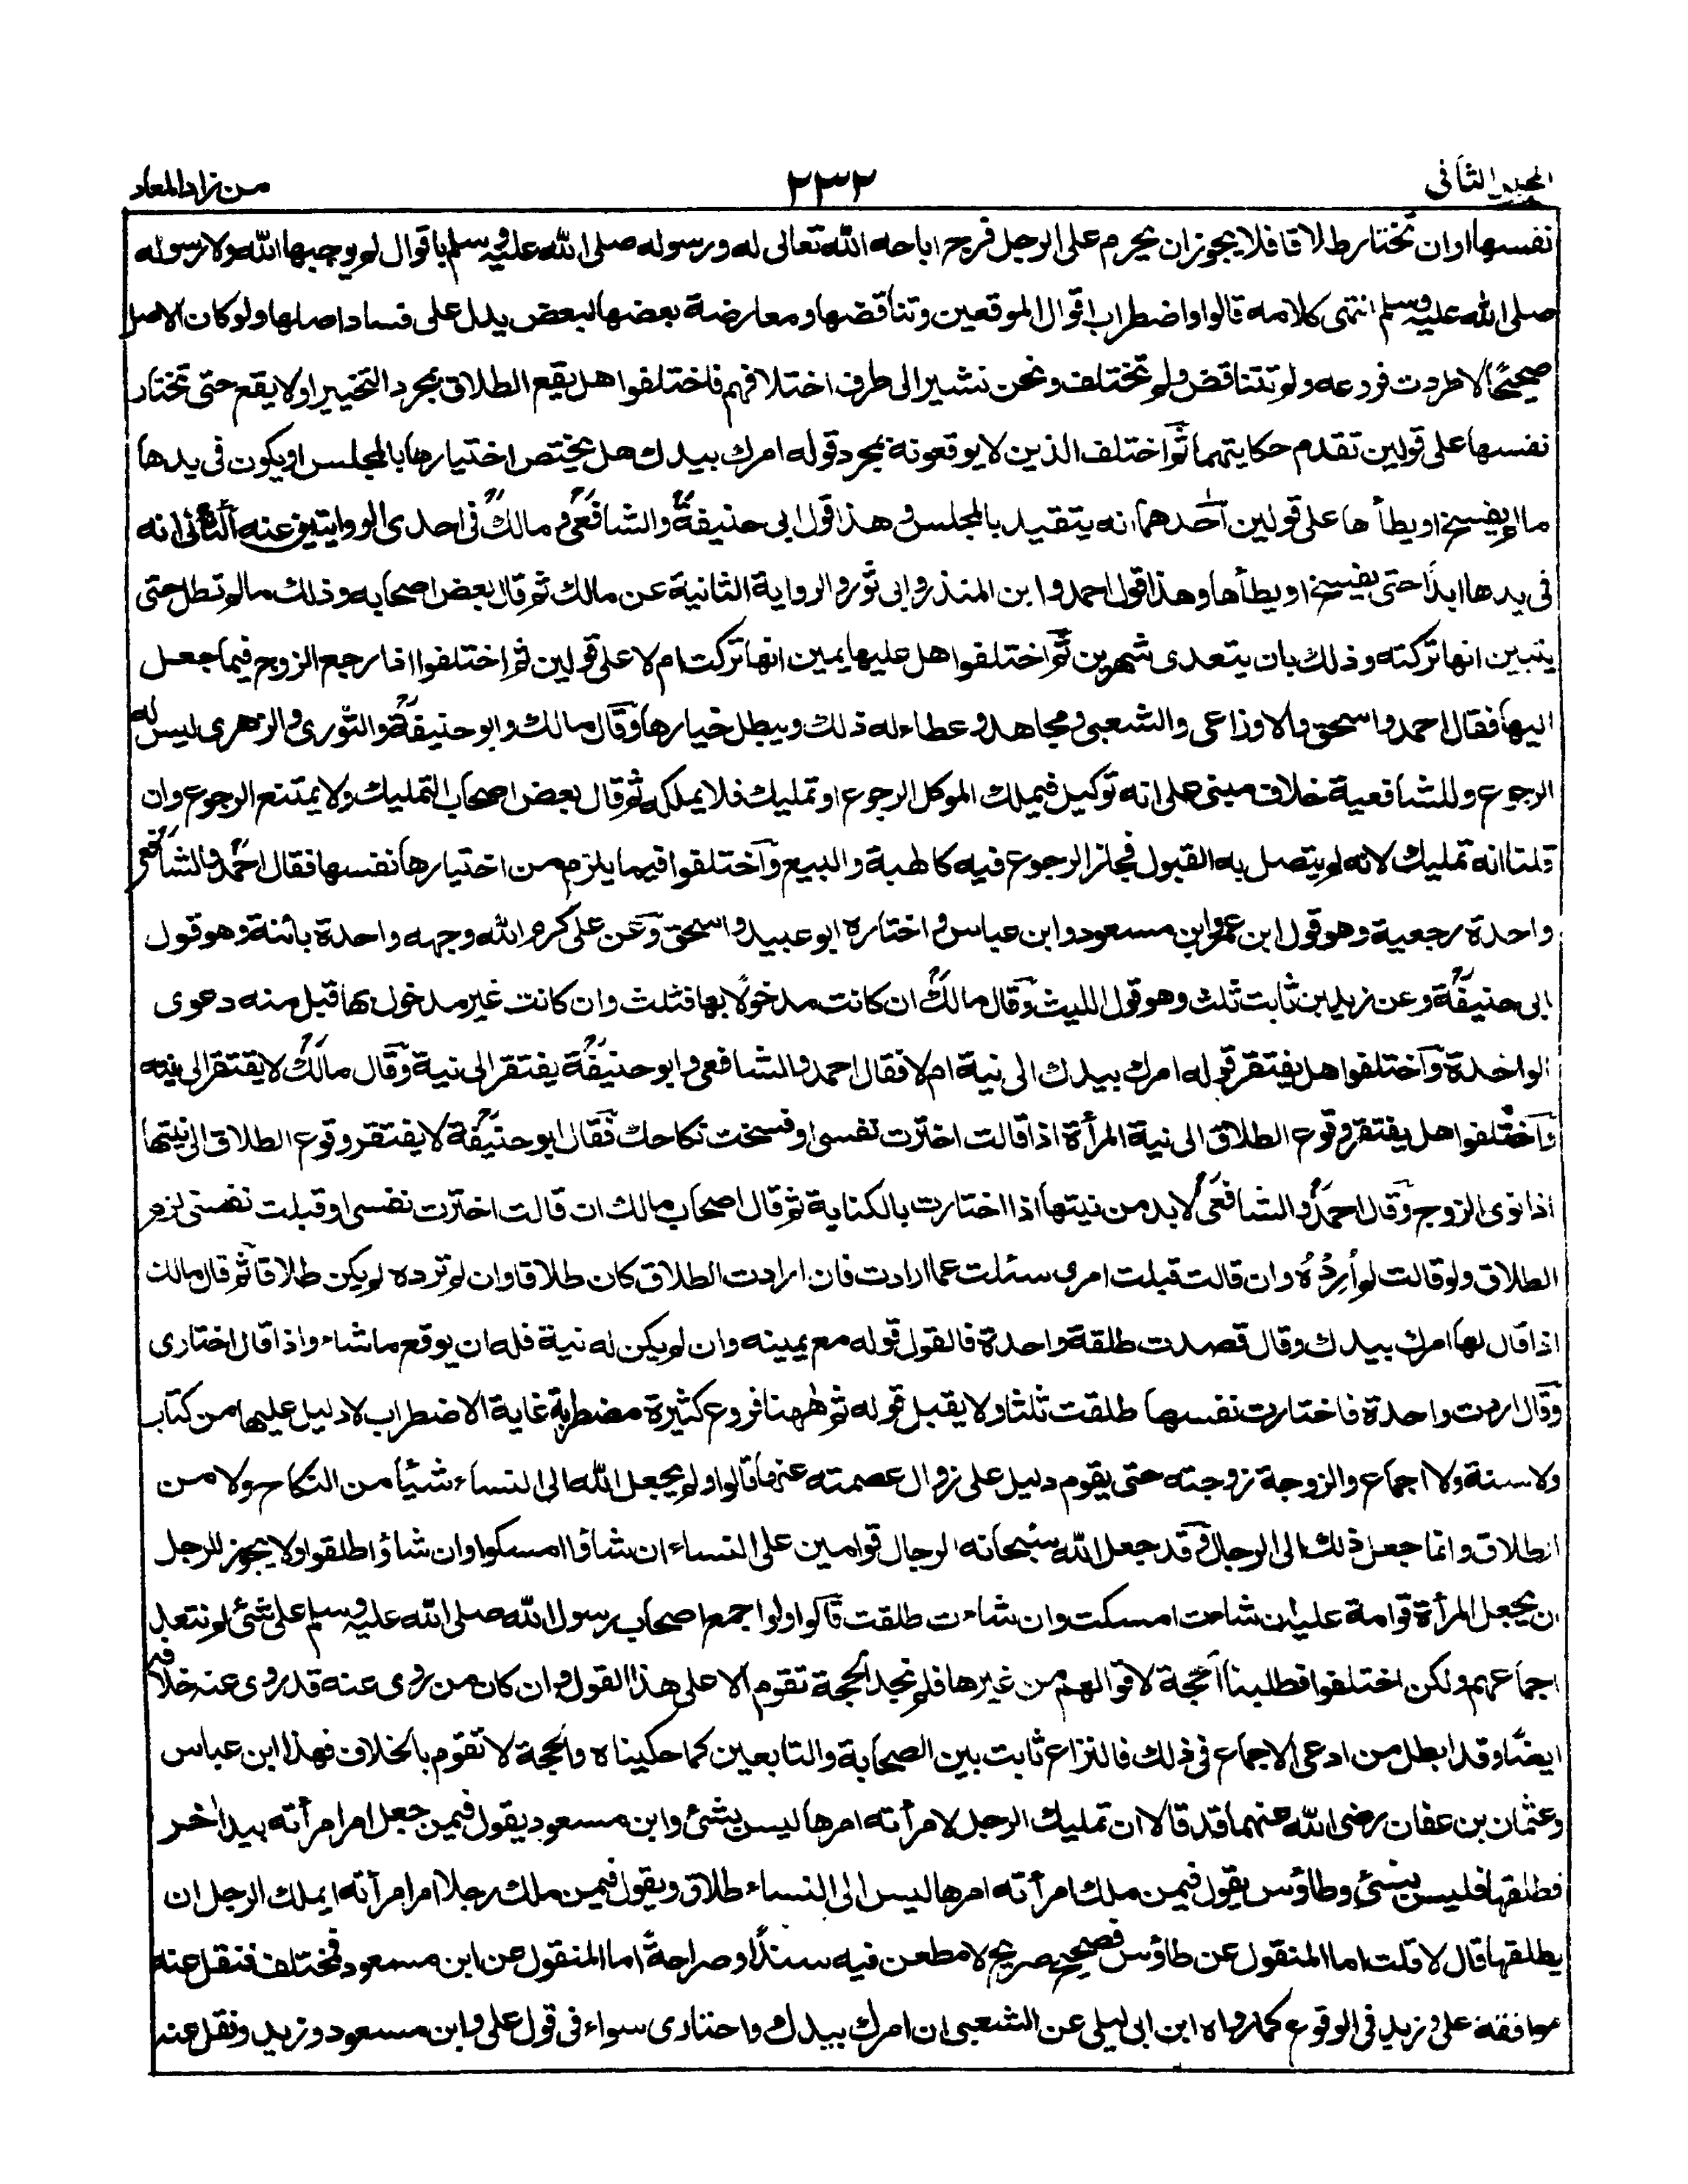 المجلد الثانى
٢٣٢
من زاد المعاد
نفسها او ان تختار طلاقا فلا يجوز ان يحرم على الرجل فرج اباحه الله تعالى له ورسوله صلى الله عليه وسلم باقوال لم يوجبها الله ولا رسوله
صلى الله عليه وسلم انتهى كلامه قالوا واضطراب اقوال الموقعين وتناقضها ومعارضة بعضها لبعض يدل على فساد اصلها ولو كان الاصل
صحيحًا لاطردت فروعه ولم تتناقض ولم تختلف ونحن نشير الى طرف اختلافهم فاختلفوا هل يقع الطلاق بمجرد التخيير او لا يقع حتى تختار
نفسها على قولين تقدم حكايتهما ثم اختلف الذين لا يوقعونه بمجرد قوله امرك بيدك هل يختص اختيارها بالمجلس او يكون فى يدها
ما لم يفسخ او يطأها على قولين احدهما انه يتقيد بالمجلس وهذا قول ابى حنيفة والشافعى ومالك فى احدى الروايتين عنه الثانى انه
فى يدها ابدًا حتى يفسخ او يطأها وهذا قول احمد وابن المنذر وابى ثور والرواية الثانية عن مالك ثم قال بعض اصحابه وذلك ما لم تطل حتى
يتبين انها تركته وذلك بان يتعدى شهرين ثم اختلفوا هل عليها يمين انها تركت ام لا على قولين ثم اختلفوا اذا رجع الزوج فيما جعل
اليها فقال احمد واسحق والاوزاعى والشعبى ومجاهد وعطاء له ذلك ويبطل خيارها وقال مالك وابو حنيفة والثورى والزهرى ليس له
الرجوع وللشافعية خلاف مبنى على انه توكيل فيملك الموكل الرجوع او تمليك فلا يملكه ثم قال بعض اصحاب التمليك ولا يمتنع الرجوع وان
قلنا انه تمليك لانه لم يتصل به القبول فجاز الرجوع فيه كالهبة والبيع واختلفوا فيما يلزم من اختيارها نفسها فقال احمد والشافعى
واحدة رجعية وهو قول ابن عمر وابن مسعود وابن عباس واختاره ابو عبيد واسحق وعن على كرم الله وجهه واحدة بائنة وهو قول
ابى حنيفة وعن زيد بن ثابت ثلث وهو قول الليث وقال مالك ان كانت مدخولا بها فثلث وان كانت غير مدخول بها قبل منه دعوى
الواحدة واختلفوا هل يفتقر قوله امرك بيدك الى نية ام لا فقال احمد والشافعى وابو حنيفة يفتقر الى نية وقال مالك لا يفتقر الى نية
واختلفوا هل يفتقر وقوع الطلاق الى نية المرأة اذا قالت اخترت نفسى او فسخت نكاحك فقال ابو حنيفة لا يفتقر وقوع الطلاق الى نيتها
اذا نوى الزوج وقال احمد والشافعى لا بد من نيتها اذا اختارت بالكناية ثم قال اصحاب مالك ان قالت اخترت نفسى او قبلت نفسى لزم
الطلاق ولو قالت لم أُرِدْهُ وان قالت قبلت امرى سئلت عما ارادت فان ارادت الطلاق كان طلاقا وان لم ترده لم يكن طلاقا ثم قال مالك
اذا قال لها امرك بيدك وقال قصدت طلقة واحدة فالقول قوله مع يمينه وان لم يكن له نية فله ان يوقع ما شاء واذا قال اختارى
وقال اردت واحدة فاختارت نفسها طلقت ثلثا ولا يقبل قوله ثم ههنا فروع كثيرة مضطربة غاية الاضطراب لا دليل عليها من كتاب
ولا سنة ولا اجماع والزوجة زوجته حتى يقوم دليل على زوال عصمته عنها قالوا ولم يجعل الله الى النساء شيئا من النكاح ولا من
الطلاق وانما جعل ذلك الى الرجال وقد جعل الله سبحانه الرجال قوامين على النساء ان شاؤا امسكوا وان شاؤا طلقوا ولا يجوز للرجل
ان يجعل المرأة قوامة عليه ان شاءت امسكت وان شاءت طلقت قالوا ولو اجمع اصحاب رسول الله صلى الله عليه وسلم على شئ لم نتعد
اجماعهم ولكن اختلفوا فطلبنا الحجة لاقوالهم من غيرها فلم نجد الحجة تقوم الا على هذا القول وان كان من روى عنه قد روى عنه خلافه
ايضا وقد ابطل من ادعى الاجماع فى ذلك فالنزاع ثابت بين الصحابة والتابعين كما حكيناه والحجة لا تقوم بالخلاف فهذا ابن عباس
وعثمان بن عفان رضى الله عنهما قد قالا ان تمليك الرجل لامرأته امرها ليس بشئ وابن مسعود يقول فيمن جعل امر امرأته بيد آخر
فطلقها فليس بشئ وطاؤس يقول فيمن ملك امرأته امرها ليس الى النساء طلاق ويقول فيمن ملك رجلا امر امرأته ايملك الرجل ان
يطلقها قال لا قلت اما المنقول عن طاؤس فصحيح صريح لا مطعن فيه سندًا وصراحةً اما المنقول عن ابن مسعود فمختلف فنقل عنه
موافقة على وزيد فى الوقوع كما رواه ابن ابى ليلى عن الشعبى ان امرك بيدك واختارى سواء فى قول على وابن مسعود وزيد ونقل عنه